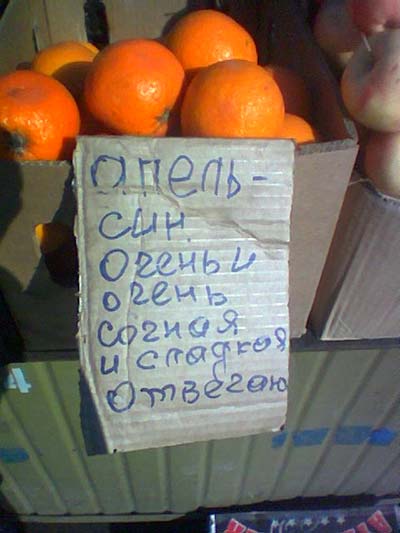 Опель-
син
очень и
очень
сочная
и сладкая
Отвечаю